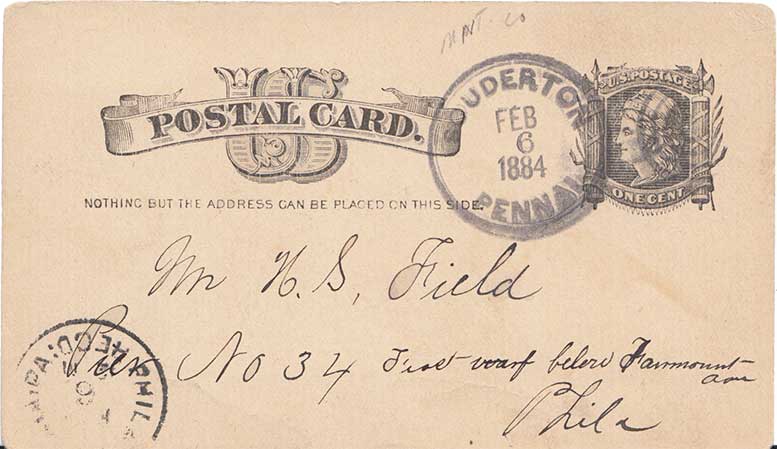 MONT. CO
US
POSTAL CARD.
NOTHING BUT THE ADDRESS CAN BE PLACED ON THIS SIDE.
UDERTON
FEB
6
1884
PENNA
U.S. POSTAGE
ONE CENT
Mr H. S. Field
Pier No 34 First warf below Fairmount
ave
Phila
PHIL
PA.
REC'D.